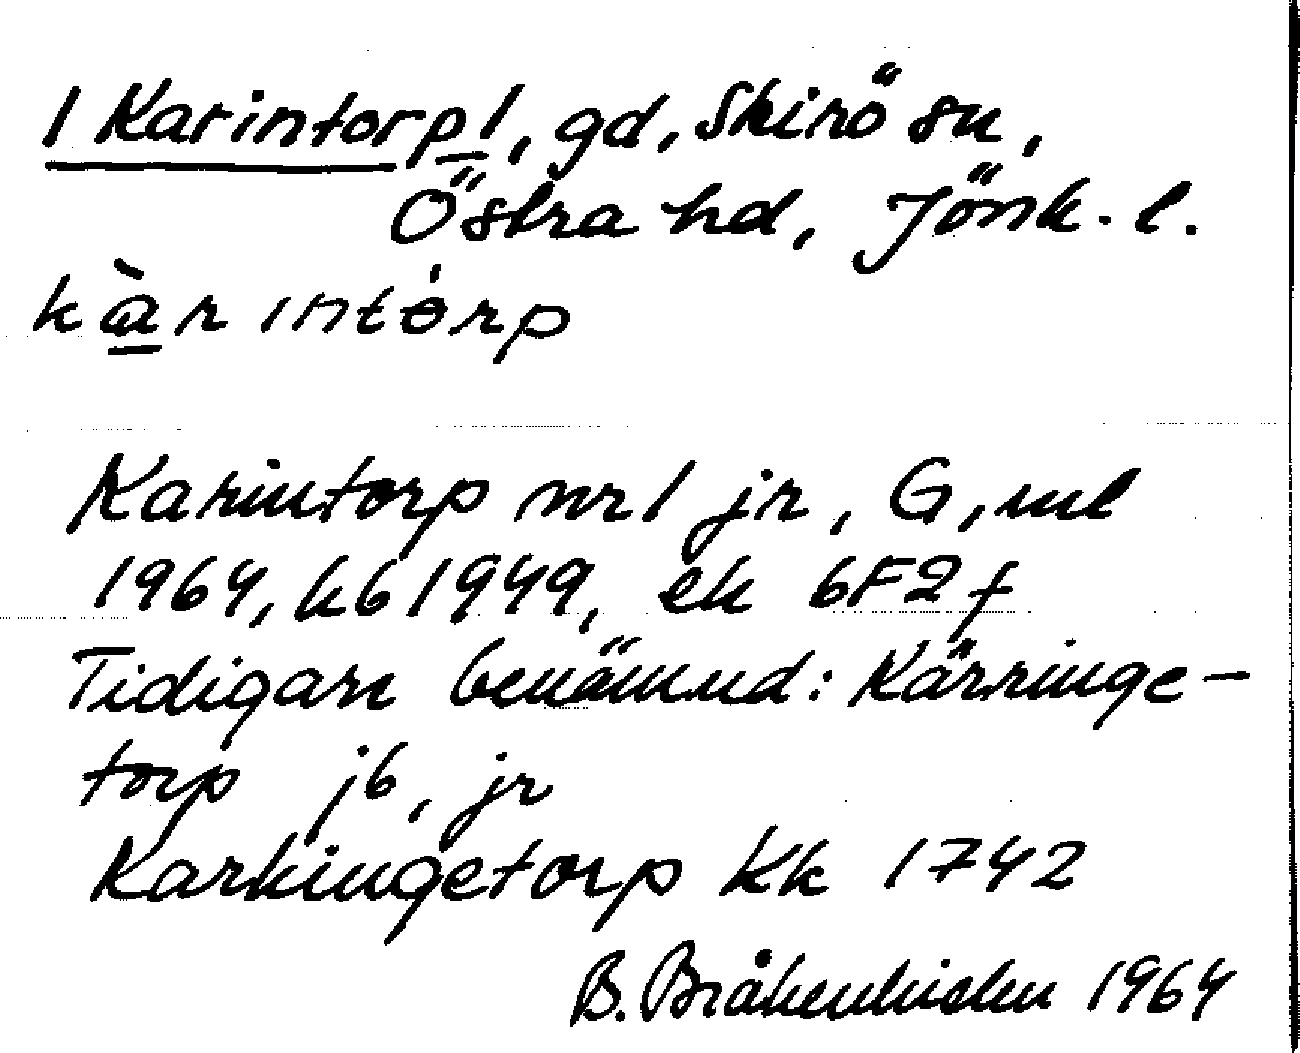 1 Karintorp 1, gd, Skirö sn,
Östra hd, Jönk. l.
kàrintórp
Karintorp nr 1 jr, G, ml
1964, kb 1949, ek 6F2f
Tidigare benämnd: Kärringe-
torp jb, jr
Karkingetorp kk 1742
B. Bråkenhielm 1964